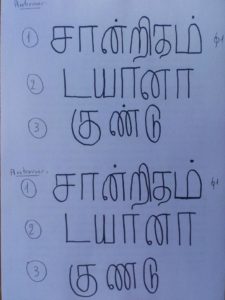 ① சான்றிதம்
② டயானா
③ குண்டு
① சான்றிதம்
② டயானா
③ குணடு